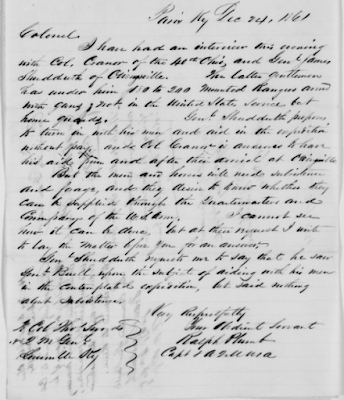 Paris Ky Dec 24, 1861
Colonel
I have had an interview this evening
with Col. Cranor of the 40th Ohio, and Genl James
Shuddeth of Owingsville. The latter gentleman
has under him 150 to 200 Mounted Rangers armed
with Guns, not in the United States Service but
home guards. Genl. Shuddeth proposes
to turn in with his men and aid in the expedition
without pay, and Col Cranor is anxious to have
his aid from and after their arrival at Owingsville
But the men and horses will need subsistence
and forage, and they desire to know whether they
can be supplied through the Quartermasters and
Commissary of the U.S. Army. I cannot see
how it can be done, but at their request I write
to lay the matter before you for an answer.
Genl Shuddeth requests me to say that he saw
Genl. Buell, upon the subject of aiding with his men
in the contemplated expedition, but said nothing
about subsistence.
Very Respectfully
Your Obdient Servant
Lt Col Thos Swords Ralph Plumb
A Q M Genl. Capt & A.Q.M USA
Louisville Ky